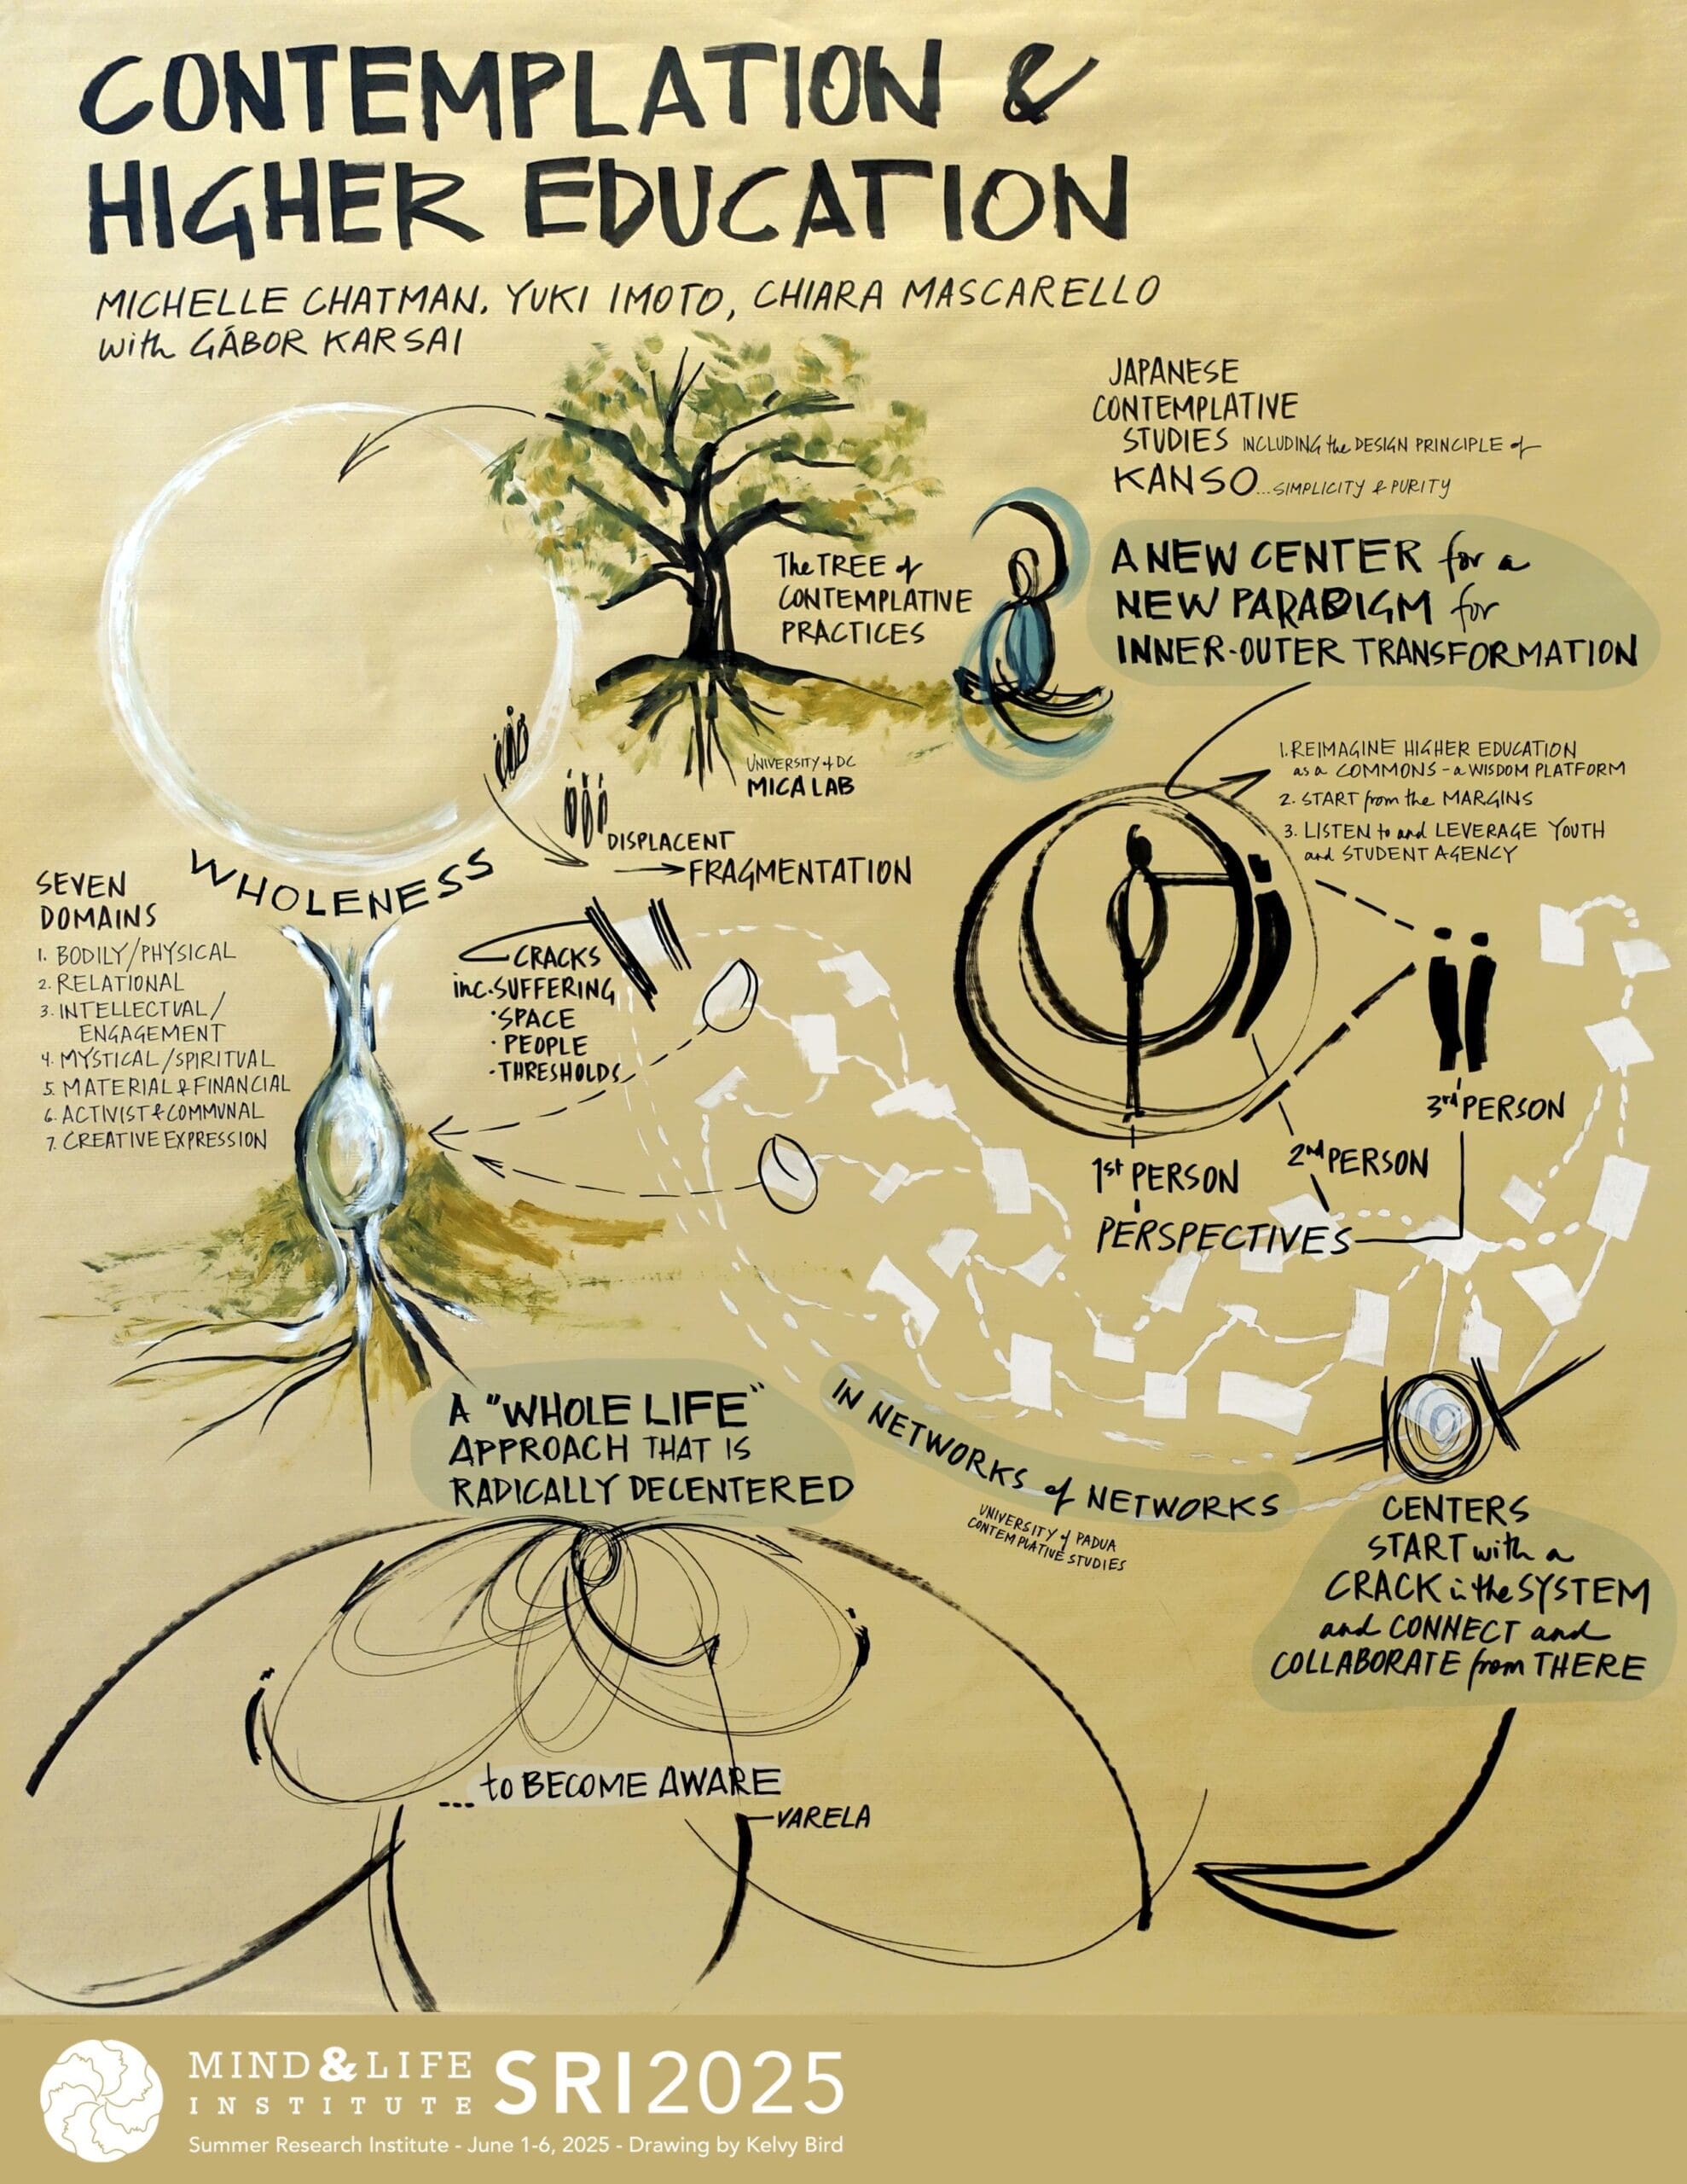 CONTEMPLATION &
HIGHER EDUCATION
MICHELLE CHATMAN, YUKI IMOTO, CHIARA MASCARELLO
with GÁBOR KARSAI
JAPANESE
CONTEMPLATIVE
STUDIES INCLUDING the DESIGN PRINCIPLE of
KANSO...SIMPLICITY & PURITY
The TREE of
CONTEMPLATIVE
PRACTICES
A NEW CENTER for a
NEW PARADIGM for
INNER-OUTER TRANSFORMATION
UNIVERSITY of DC
MICA LAB
1. REIMAGINE HIGHER EDUCATION
as a COMMONS - a WISDOM PLATFORM
2. START from the MARGINS
3. LISTEN to and LEVERAGE YOUTH
and STUDENT AGENCY
DISPLACENT
FRAGMENTATION
WHOLENESS
SEVEN
DOMAINS
1. BODILY/PHYSICAL
2. RELATIONAL
3. INTELLECTUAL/
ENGAGEMENT
4. MYSTICAL/SPIRITUAL
5. MATERIAL & FINANCIAL
6. ACTIVIST & COMMUNAL
7. CREATIVE EXPRESSION
CRACKS
inc. SUFFERING
• SPACE
• PEOPLE
• THRESHOLDS
1st PERSON
2nd PERSON
3rd PERSON
PERSPECTIVES
A "WHOLE LIFE"
APPROACH THAT IS
RADICALLY DECENTERED
IN NETWORKS of NETWORKS
UNIVERSITY of PADUA
CONTEMPLATIVE STUDIES
CENTERS
START with a
CRACK in the SYSTEM
and CONNECT and
COLLABORATE from THERE
...to BECOME AWARE
VARELA
MIND & LIFE
INSTITUTE
SRI2025
Summer Research Institute - June 1-6, 2025 - Drawing by Kelvy Bird